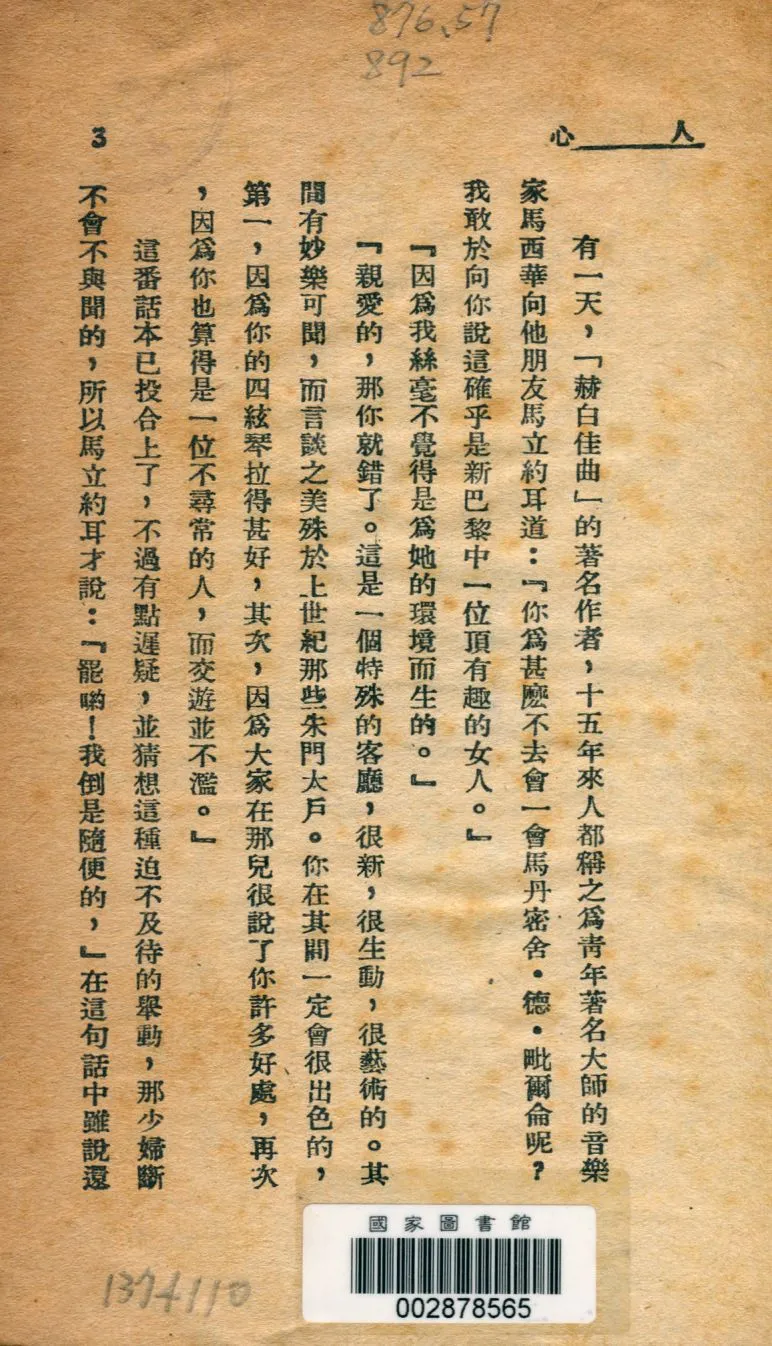 876.57
892
人——心
3
有一天，「赫白佳曲」的著名作者，十五年來人都稱之爲靑年著名大師的音樂
家馬西華向他朋友馬立約耳道：『你爲甚麽不去會一會馬丹密舍·德·毗爾侖呢？
我敢於向你說這確乎是新巴黎中一位頂有趣的女人。』
『因爲我絲毫不覺得是爲她的環境而生的。』
『親愛的，那你就錯了。這是一個特殊的客廳，很新，很生動，很藝術的。其
間有妙樂可聞，而言談之美殊於上世紀那些朱門大戶。你在其間一定會很出色的，
第一，因爲你的四絃琴拉得甚好，其次，因爲大家在那兒很說了你許多好處，再次
，因爲你也算得是一位不尋常的人，而交遊並不濫。』
這番話本已投合上了，不過有點遲疑，並猜想這種迫不及待的舉動，那少婦斷
不會不與聞的，所以馬立約耳才說：『罷喲！我倒是隨便的，』在這句話中雖說還
國家圖書館
002878565
1374110